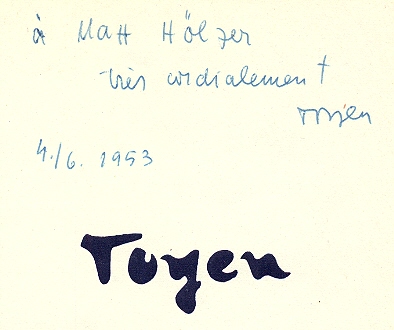 à Matt Hölzer
très cordialement
Toyen
4./6. 1953
Toyen